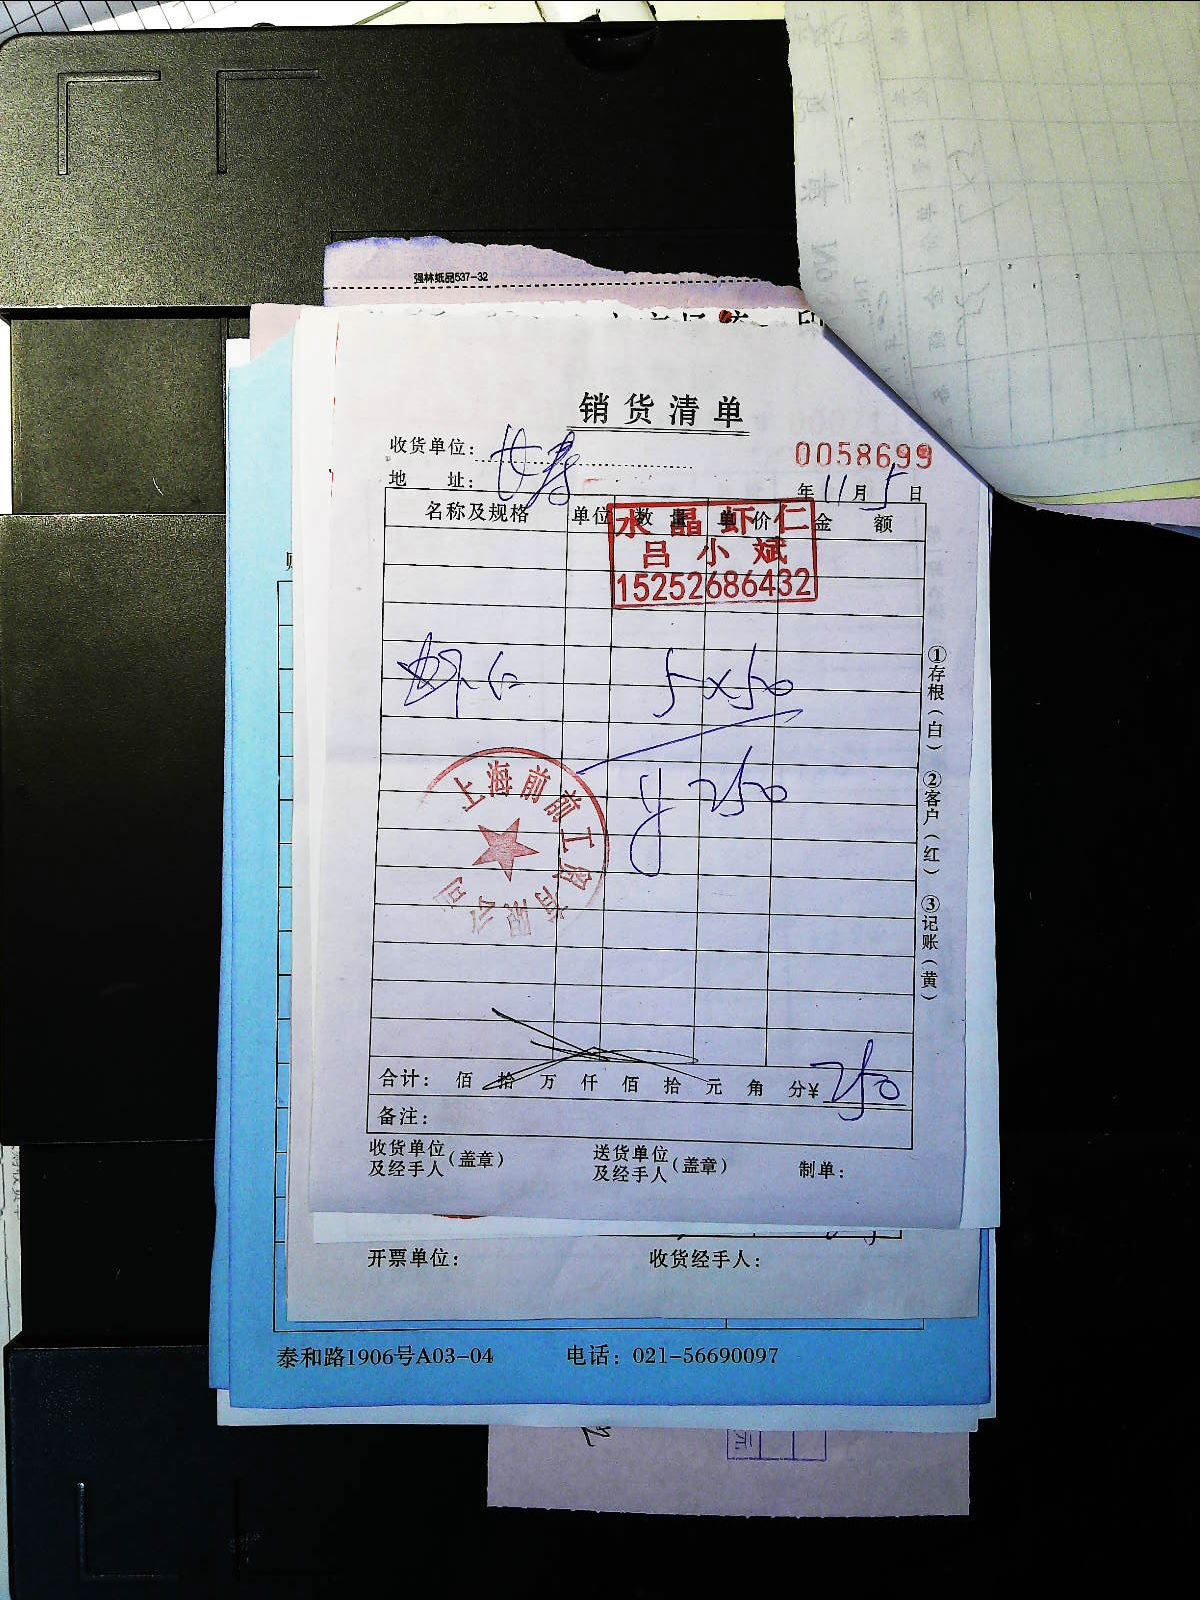 强林纸品537-32
销货清单
收货单位：
0058699
地 址：
年 11 月 5 日
名称及规格 单位 数量 单价 金额
水晶虾仁
吕小斌
15252686432
虾仁 5×50
¥250
上海前前工贸有限公司
①存根（白） ②客户（红） ③记账（黄）
合计： 佰 拾 万 仟 佰 拾 元 角 分¥ 250
备注：
收货单位及经手人（盖章） 送货单位及经手人（盖章） 制单：
开票单位： 收货经手人：
泰和路1906号A03-04 电话：021-56690097